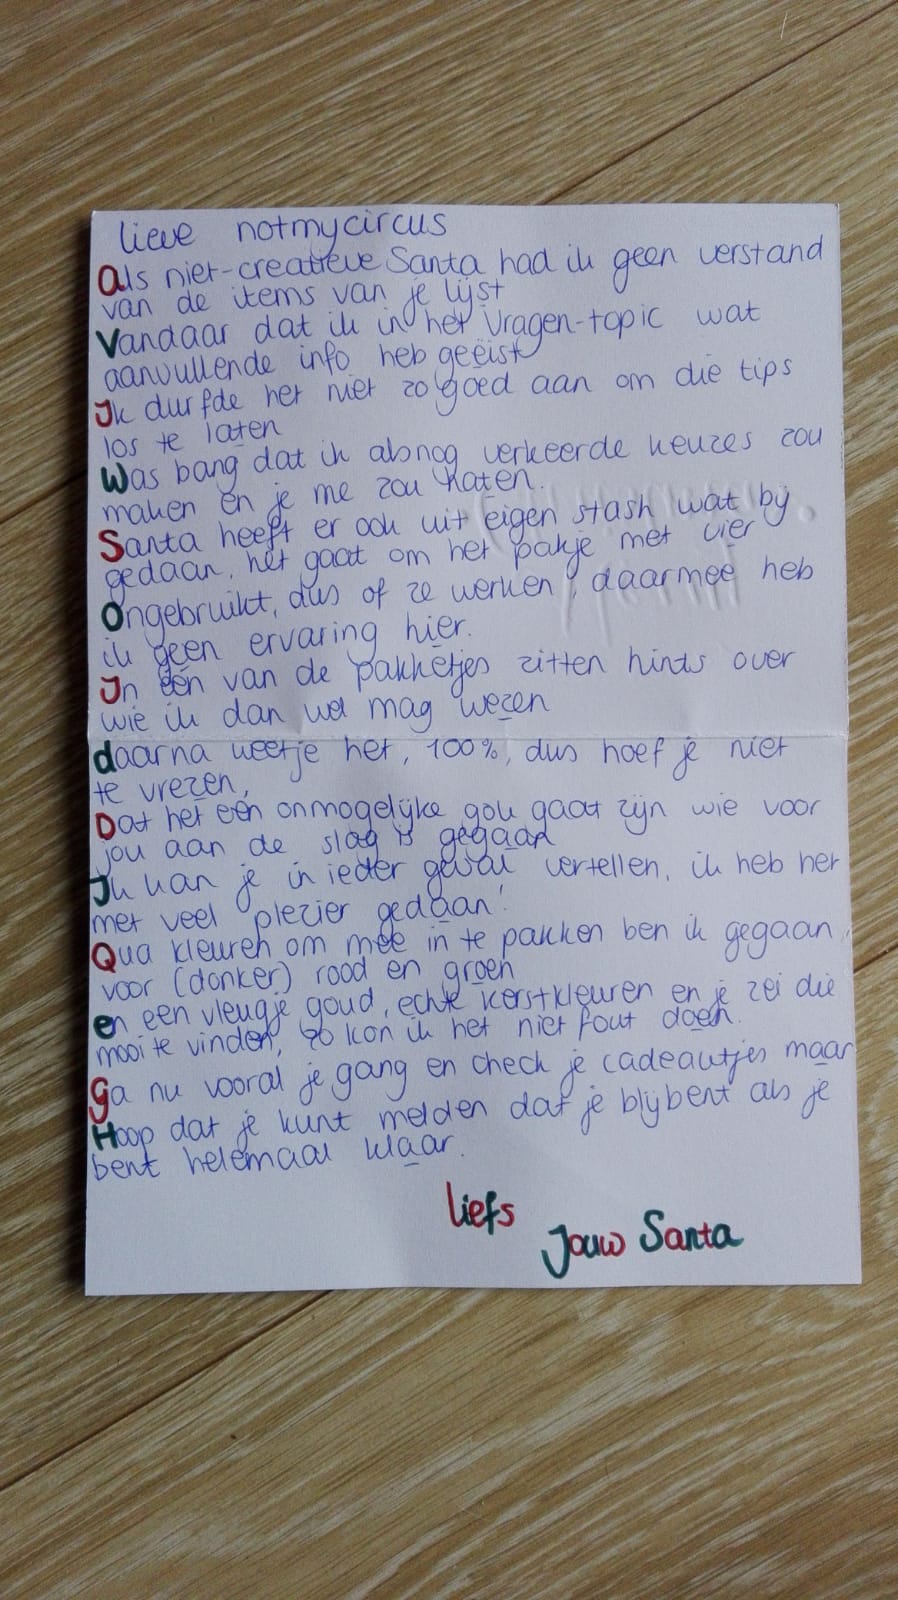 lieve notmycircus
Als niet-creatieve Santa had ik geen verstand
van de items van je lijst
Vandaar dat ik in het vragen-topic wat
aanvullende info heb geëist
Ik durfde het niet zo goed aan om die tips
los te laten
Was bang dat ik alsnog verkeerde keuzes zou
maken en je me zou haten.
Santa heeft er ook uit eigen stash wat bij
gedaan, het gaat om het pakje met vier
Ongebruikt, dus of ze werken, daarmee heb
ik geen ervaring hier.
In één van de pakketjes zitten hints over
wie ik dan wel mag wezen
daarna weet je het, 100%, dus hoef je niet
te vrezen,
Dat het een onmogelijke gok gaat zijn wie voor
jou aan de slag is gegaan
Ik kan je in ieder geval vertellen, ik heb het
met veel plezier gedaan!
Qua kleuren om mee in te pakken ben ik gegaan
voor (donker) rood en groen
en een vleugje goud, echte kerstkleuren en je zei die
mooi te vinden, zo kon ik het niet fout doen.
Ga nu vooral je gang en check je cadeautjes maar
Hoop dat je kunt melden dat je blij bent als je
bent helemaal klaar.
liefs
Jouw Santa